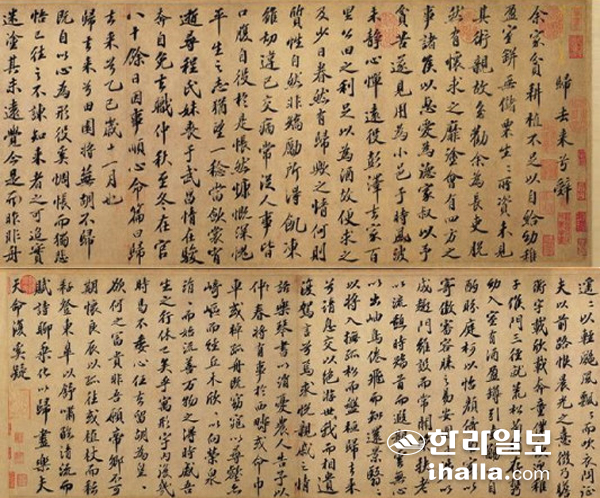 歸去來兮辭
余家貧耕植不足以自給幼稚
盈室缾無儲粟生生所資未見
其術親故多勸余為長吏脫
然有懷求之靡塗會有四方之
事諸侯以惠愛為德家叔以予
貧苦遂見用為小邑于時風波
未靜心憚遠役彭澤去家百
里公田之利足以為酒故便求之
及少日眷然有歸歟之情何則
質性自然非矯勵所得飢凍
雖切違己交病嘗從人事皆
口腹自役於是悵然慷慨深愧
平生之志猶望一稔當斂裳宵
逝尋程氏妹喪于武昌情在駿
奔自免去職仲秋至冬在官
八十餘日因事順心命篇曰歸
去來兮乙巳歲十一月也
歸去來兮田園將蕪胡不歸
既自以心為形役奚惆悵而獨悲
悟已往之不諫知來者之可追實
迷塗其未遠覺今是而昨非舟
遙遙以輕颺風飄飄而吹衣問征
夫以前路恨晨光之熹微乃瞻
衡宇載欣載奔童僕歡迎稚
子候門三徑就荒松菊猶存
幼入室有酒盈罇引壺
酌眄庭柯以怡顏倚南
寄傲審容膝之易安園
成趣門雖設而常關策
以流憩時矯首而遐觀雲無
以出岫鳥倦飛而知還景翳翳
以將入撫孤松而盤桓歸去來
兮請息交以絕游世與我而相遺
復駕言兮焉求悅親戚之情
話樂琴書以消憂農人告予以
仲春將有事于西疇或命巾
車或棹孤舟既窈窕以尋壑亦
崎嶇而經丘木欣欣以向榮泉
涓涓而始流善萬物之得時感吾
生之行休已矣乎寓形宇內復幾
時曷不委心任去留胡為皇皇
欲何之富貴非吾願帝鄉不可
期懷良辰以孤往或植杖而耘
耔登東皋以舒嘯臨清流而
賦詩聊乘化以歸盡樂夫
天命復奚疑
한라일보
ihalla.com